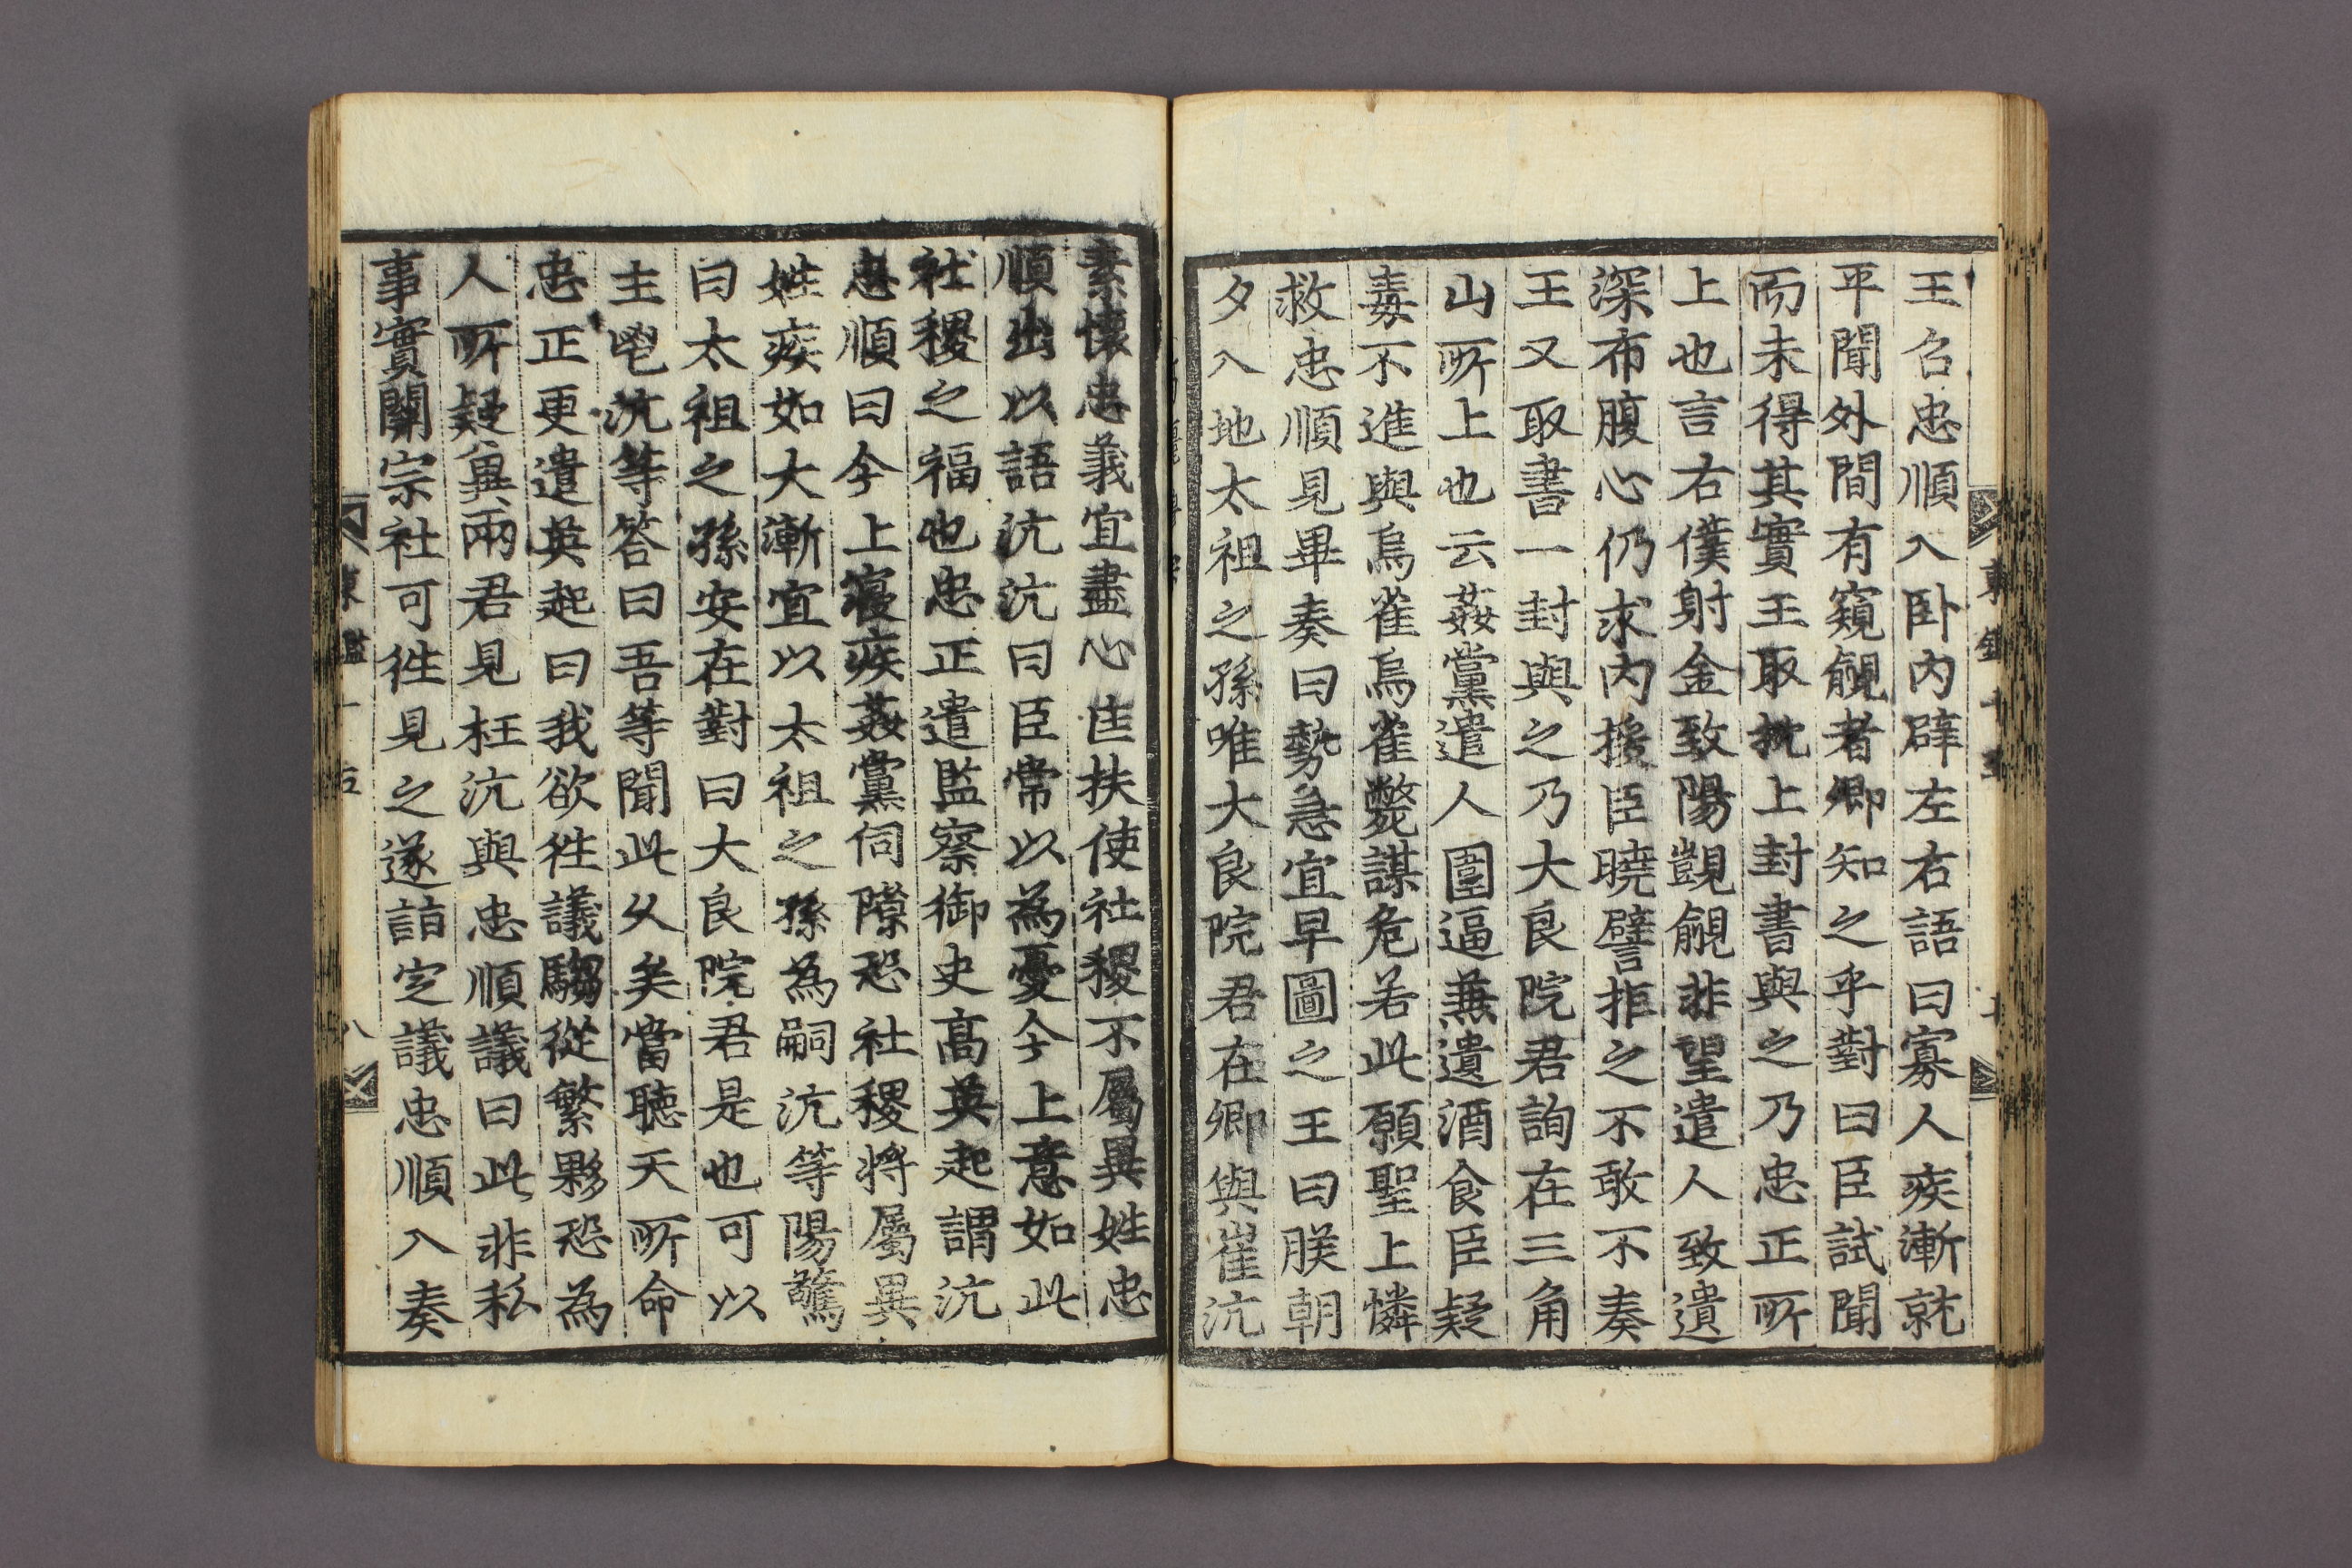 王召忠順入卧內辟左右語曰寡人疾漸就
平聞外間有窺覦者卿知之乎對曰臣試聞
而未得其實王取枕上封書與之乃忠正所
上也言右僕射金致陽覬覦非望遣人致遺
深布腹心仍求內援臣曉譬拒之不敢不奏
王又取書一封與之乃大良院君詢在三角
山所上也云姦黨遣人圍逼兼遺酒食臣疑
毒不進與烏雀烏雀斃謀危若此願聖上憐
救忠順見畢奏曰勢急宜早圖之王曰朕朝
夕入地太祖之孫唯大良院君在卿與崔沆
素懷忠義宜盡心匡扶使社稷不屬異姓忠
順出以語沆沆曰臣常以為憂今上意如此
社稷之福也忠正遣監察御史高英起謂沆
忠順曰今上寢疾姦黨伺隙恐社稷將屬異
姓疾如大漸宜以太祖之孫為嗣沆等陽驚
曰太祖之孫安在對曰大良院君是也可以
主鬯沆等答曰吾等聞此久矣當聽天所命
忠正更遣英起曰我欲徃議騶從繁夥恐為
人所疑冀兩君見枉沆與忠順議曰此非私
事實關宗社可徃見之遂詣定議忠順入奏
東鑑十五
八